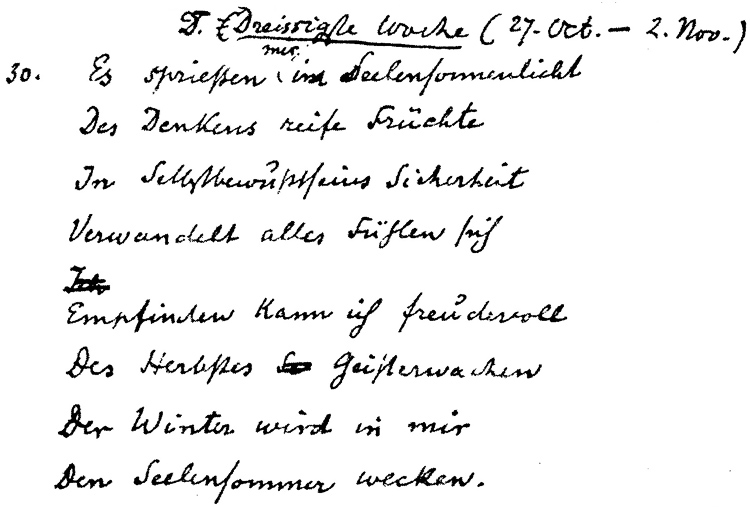 D. Z Dreissigste Woche (27. Oct. – 2. Nov.)
30. Es sprießen mir im Seelensonnenlicht
Des Denkens reife Früchte
In Selbstbewußtseins Sicherheit
Verwandelt alles Fühlen sich
Empfinden kann ich freudevoll
Des Herbstes Geisterwachen
Der Winter wird in mir
Den Seelensommer wecken.